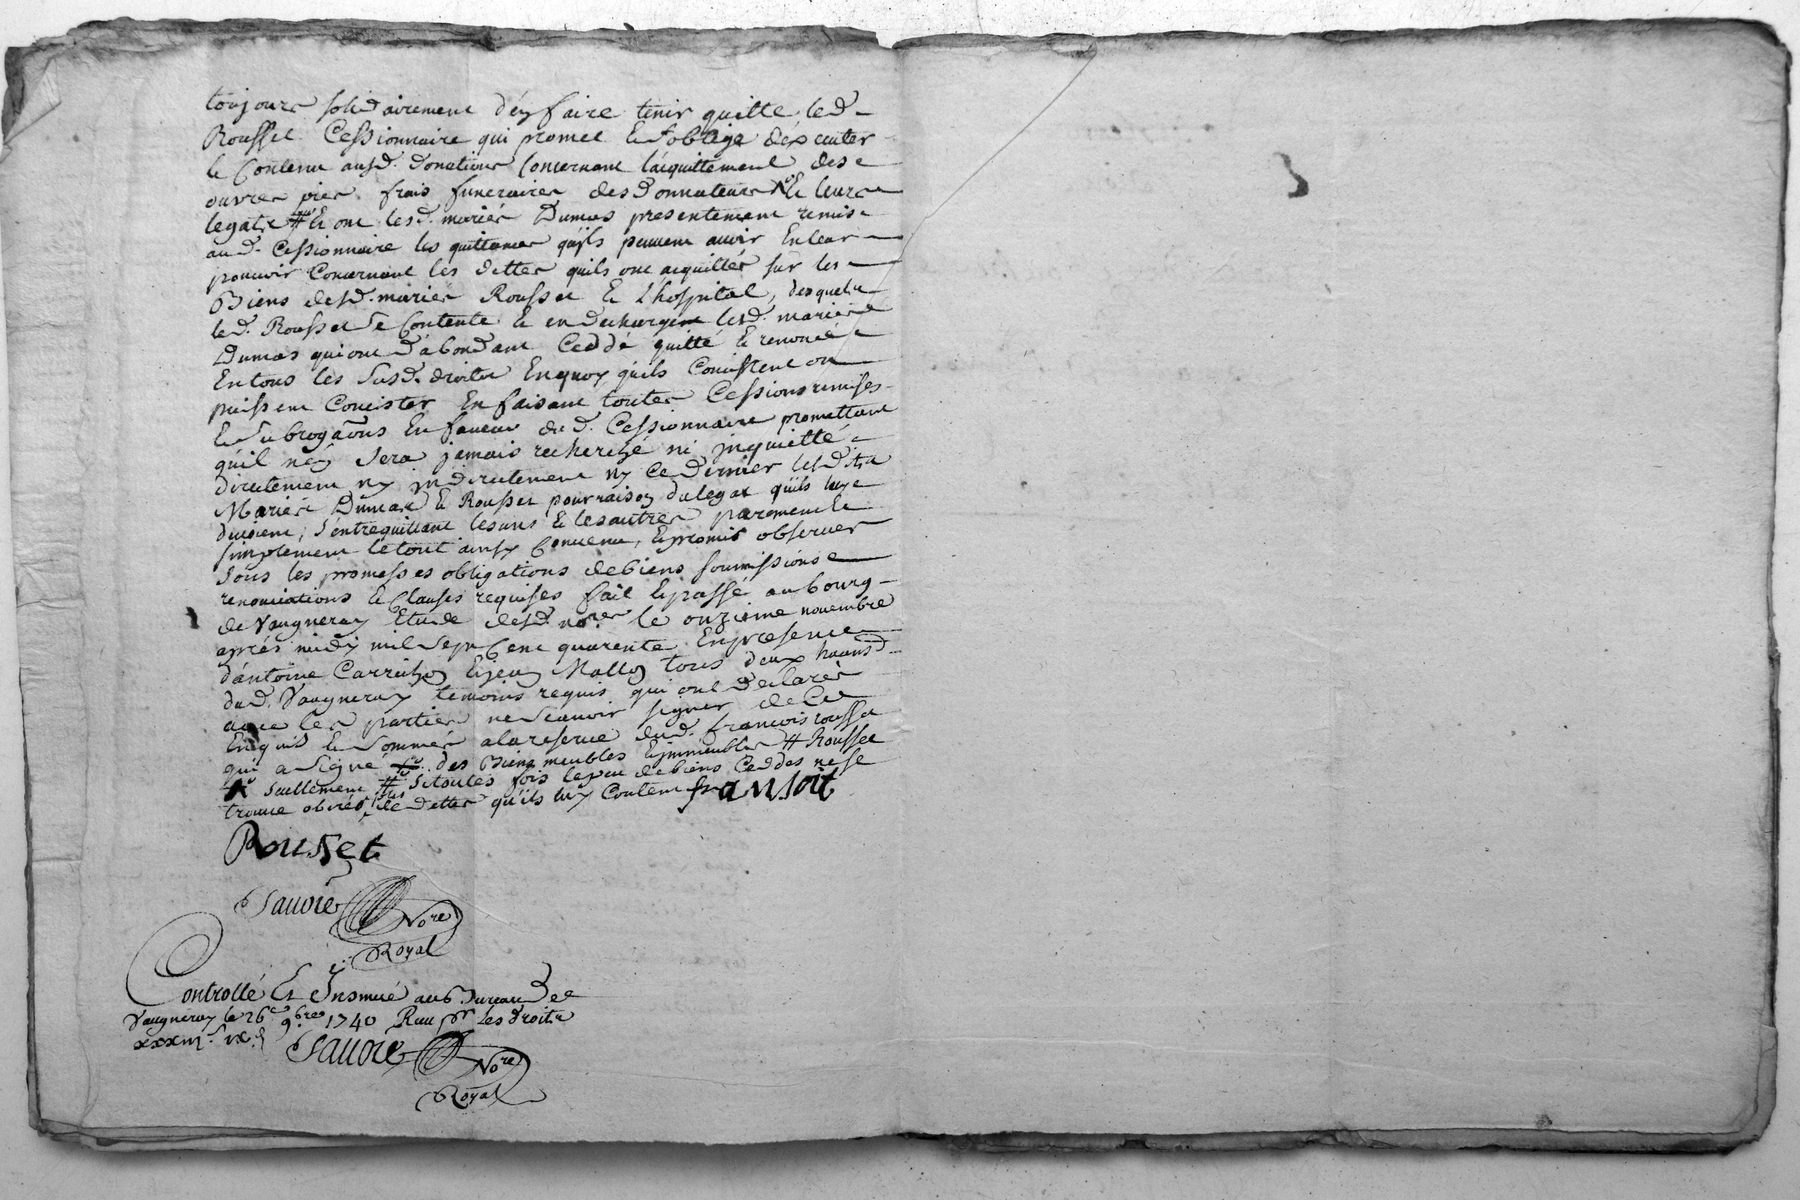 toujours solidairement d'en faire tenir quitte led
Rousset Cessionnaire qui promet & s'oblige d'exsecuter
le Contenu ausd. donations Concernant l'aquittement des
œuvres pies frais funeraires des donnateurs & leurs
legats # & ont lesd. mariés Dumas presentement remis
aud. Cessionnaire les quittances qu'ils peuvent avoir En leur
pouvoir Concernant les dettes quils ont acquittés sur les
Biens desd. mariés Rousset & L'hospital, desquels
led. Rousset se Contente & en decharge lesd. mariés
Dumas qui ont d'abondant Ceddé quitté & renoncé
En tous les susd. droits En quoy qu'ils Consistent ou
puissent Concister En faisant toutes Cessions remises
& subrogãons En faveur dud. Cessionnaire promettant
qu'il n'en sera jamais recherché ni jnquietté
directement ny jndirectement ny ce dernier lesdits
Mariés Dumas & Rousset pour raison du legat qu'ils luy
duisent, s'entrequittant les uns & les autres purement &
simplement le tout ainsy Convenu, & promis observer
sous les promesses obligations de biens soumissions
renonciations & Clauses requises fait & passé au bourg
de Vaugneray Etude desd. nores. le onzieme novembre
après midy mil sept Cent quarente En presence
d'antoine Carrichon & jean Mollon tous deux haans
dud. Vaugneray temoins requis qui ont declarés
avec les parties ne scavoir signer de Ce
Enquis & sommés a la reserve dud. françois rousset
qui a signé des Biens meubles & jmmeubles # Rousset
seullement # si toutes fois le peu de biens Ceddés ne se
trouve obéré de dettes qu'ils luy
Rousset
Savoie Nore
Royal
Controllé Et Insinué au Bureau De
Vaugneray le 26e 9bre 1740 Reçu pr les droits
Savoie Nore
Royal